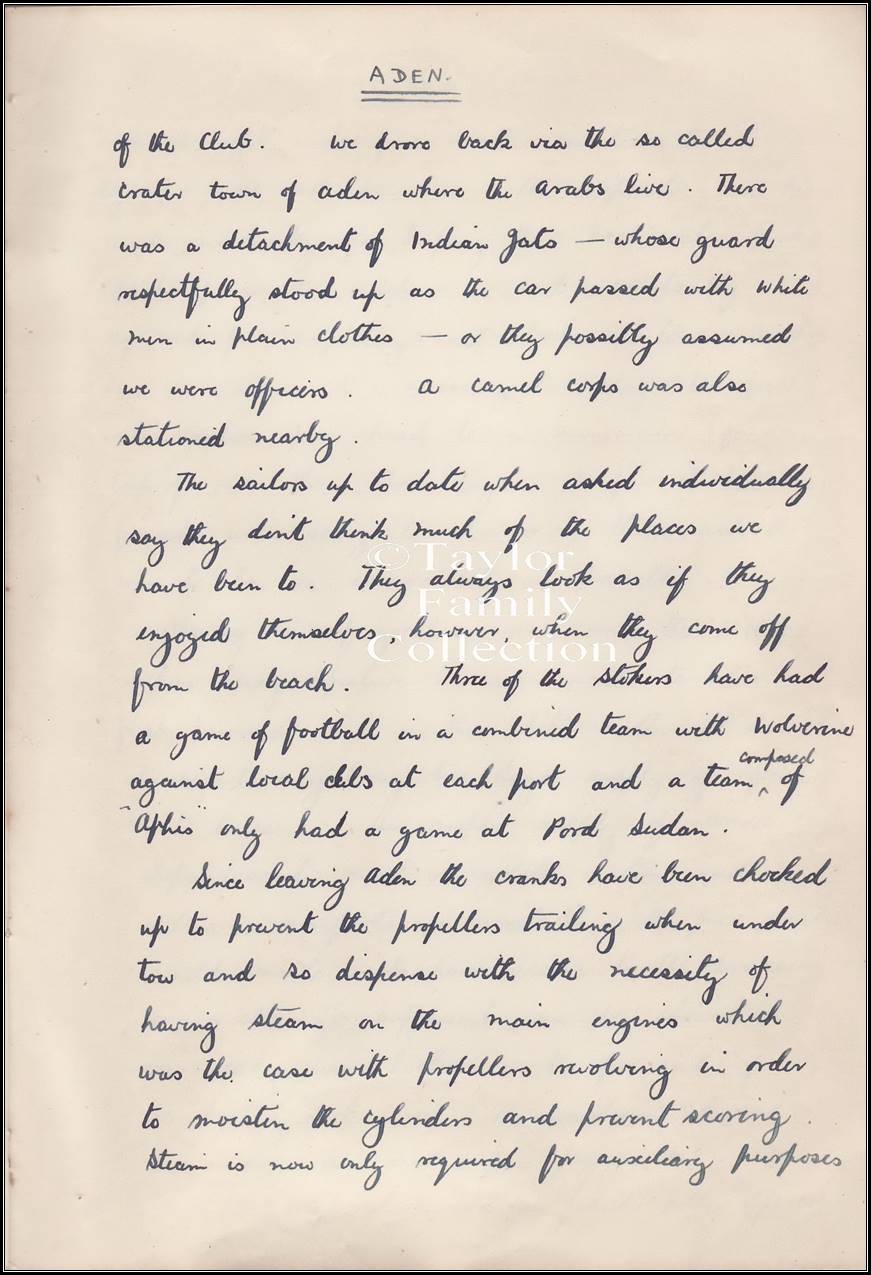 ADEN.
of the Club. We drove back via the so called
crater town of Aden where the Arabs live. There
was a detachment of Indian Jats — whose guard
respectfully stood up as the car passed with white
men in plain clothes — or they possibly assumed
we were officers. A camel corps was also
stationed nearby.
The sailors up to date when asked individually
say they don't think much of the places we
have been to. They always look as if they
enjoyed themselves, however, when they come off
from the beach. Three of the stokers have had
a game of football in a combined team with Wolverine
against local clubs at each port and a team composed of
"Aphis" only had a game at Pord Sudan.
Since leaving Aden the cranks have been chocked
up to prevent the propellers trailing when under
tow and so dispense with the necessity of
having steam on the main engines which
was the case with propellers revolving in order
to moisten the cylinders and prevent scoring.
Steam is now only required for auxiliary purposes
© Taylor
Family
Collection